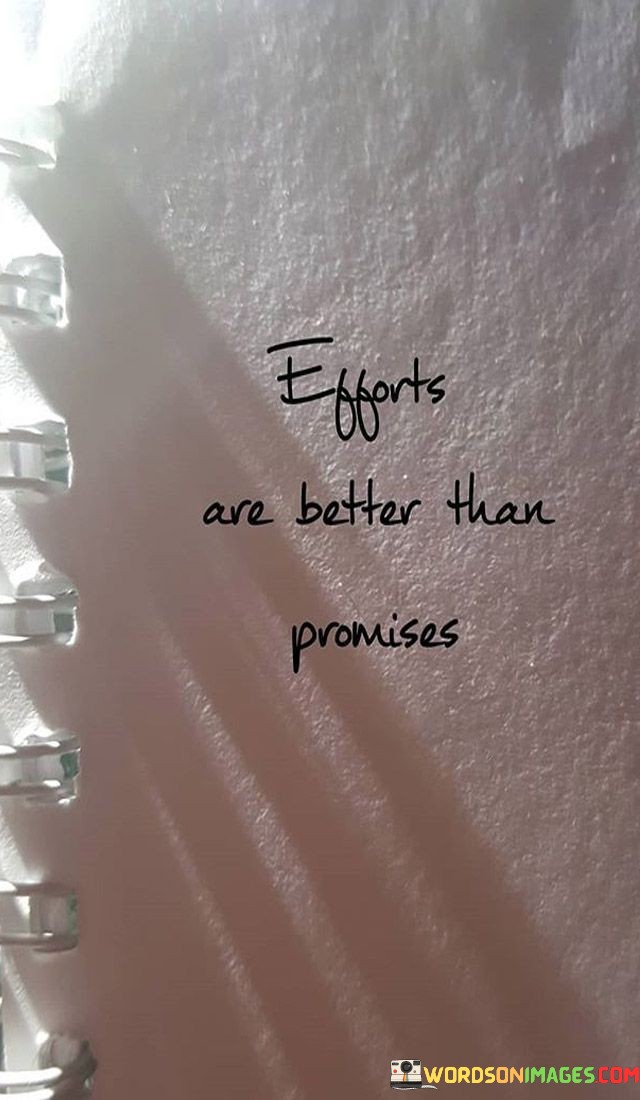 Efforts
are better than
promises
WORDSONIMAGES.COM